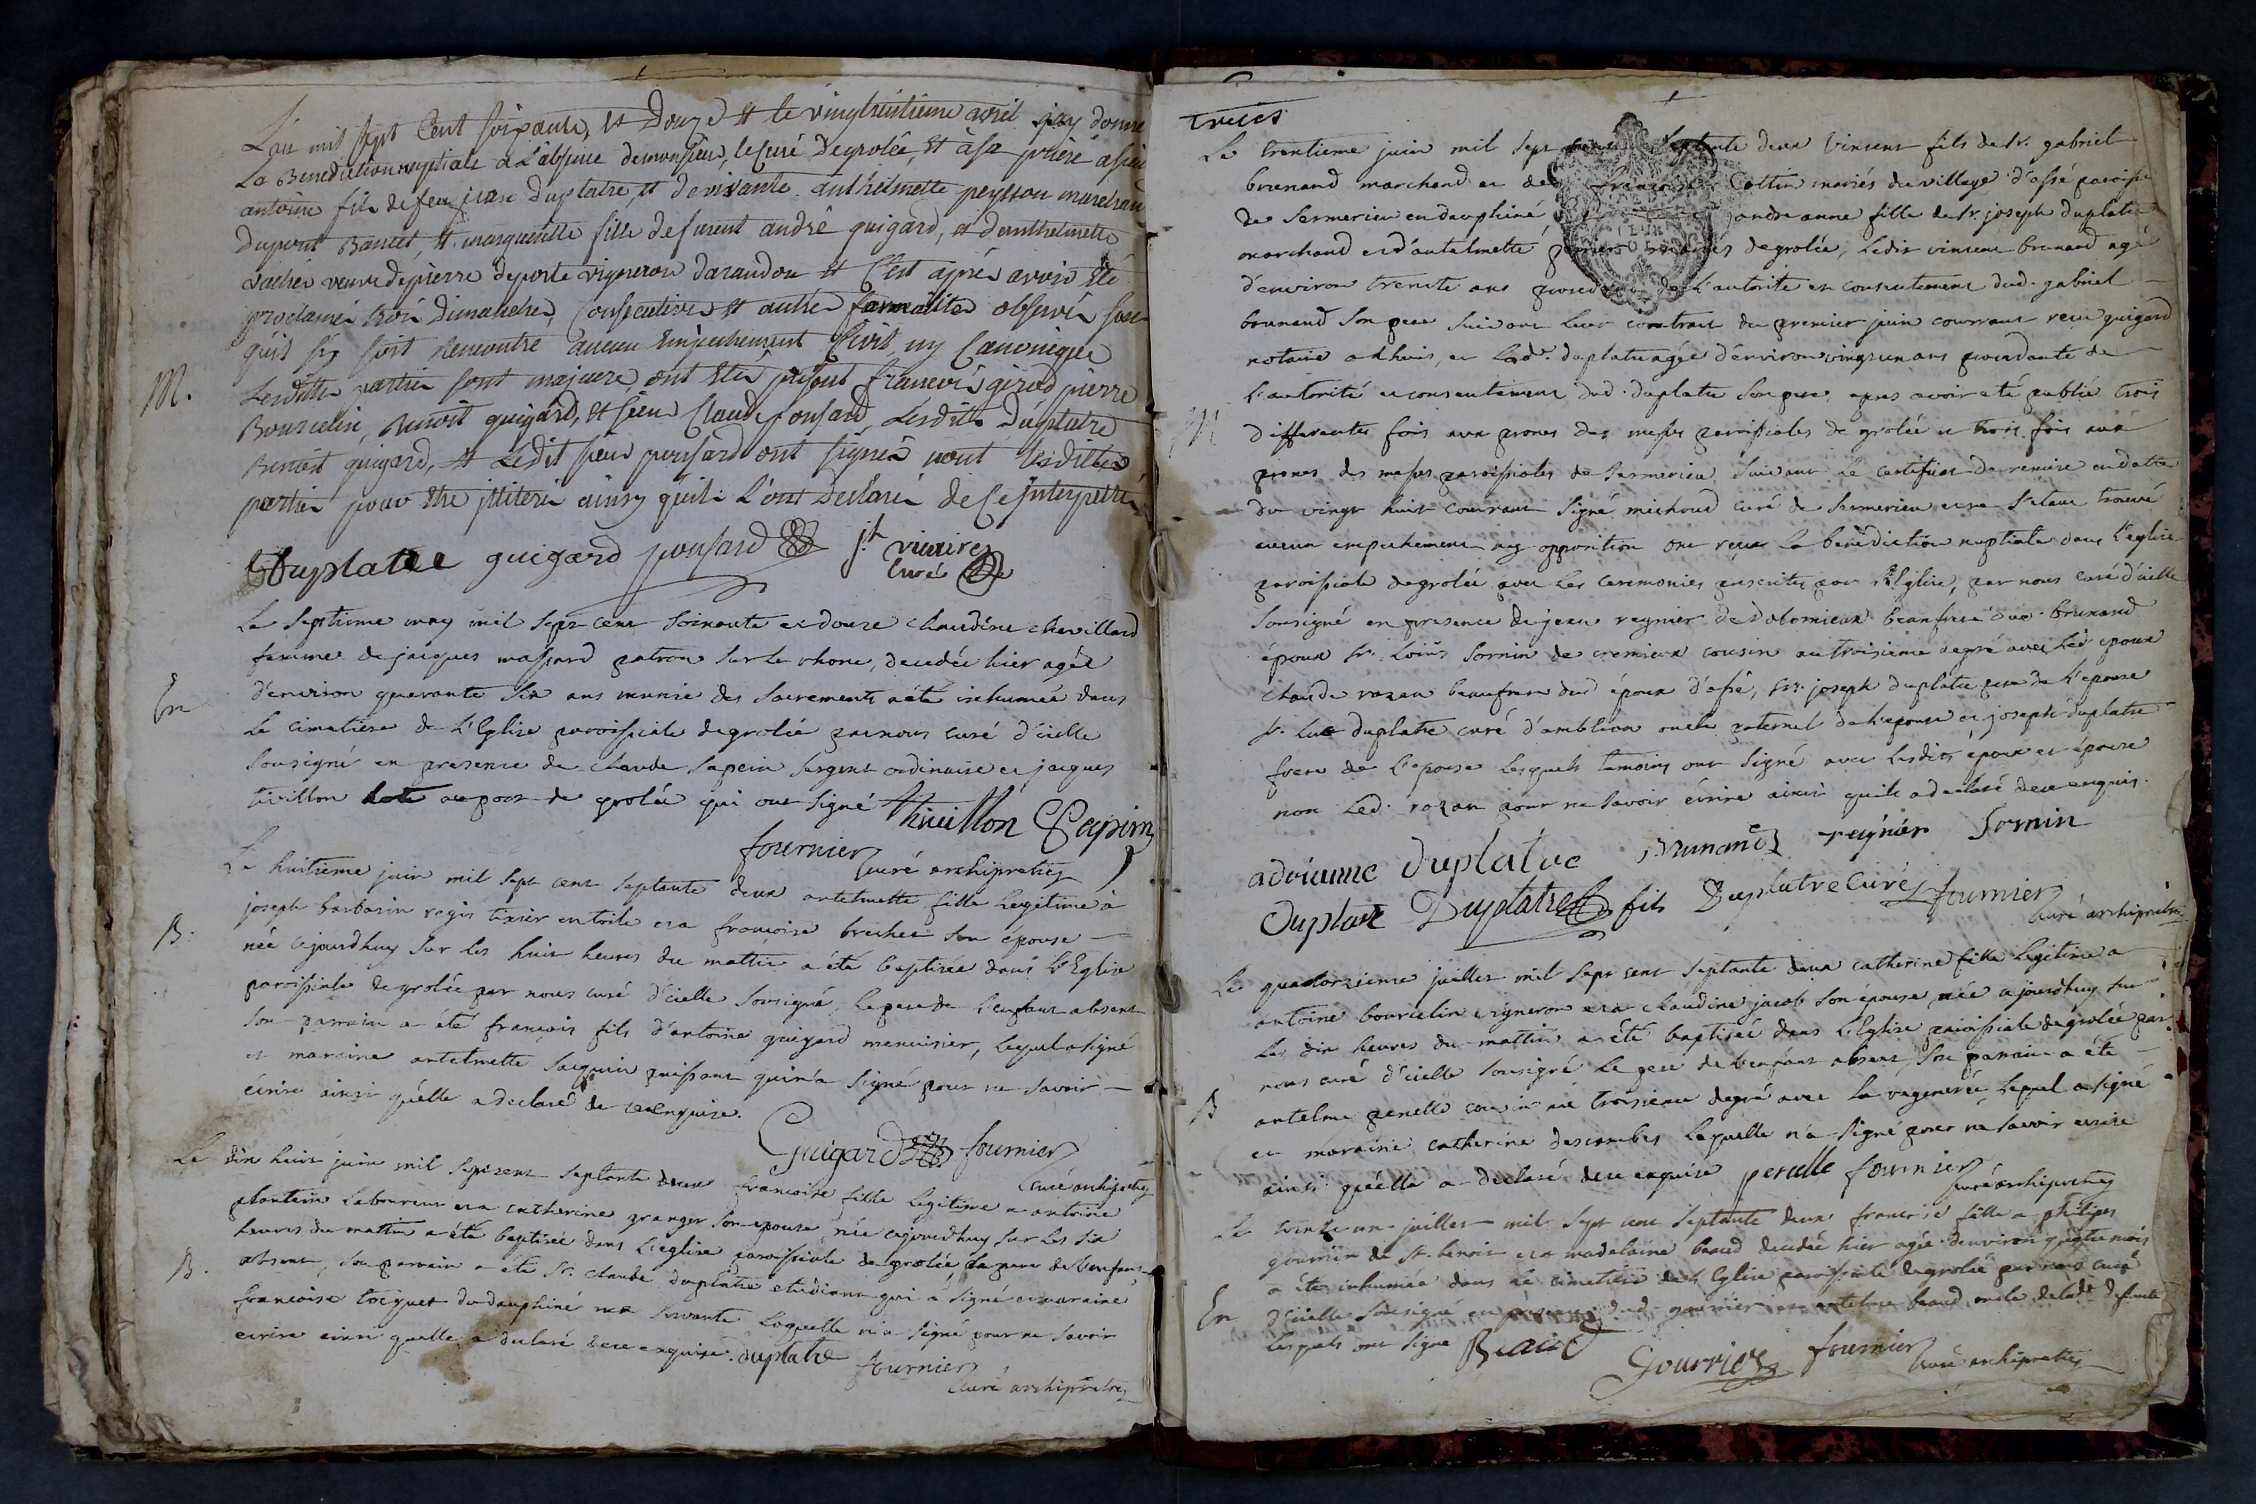 L'an mil sept Cent soixante, et Douze et le vingthuitieme avril jay donné
La Benediction nuptiale a L'absence demonsieur, le Curé Degrolée, et à sa prière a sieur
antoine fils de feu Duplatre, et de vivante anthelmette peysson marchand
Dupont et marguerite fille defunt andré guigard, et d'anthelmette
veuve depierre deporte vigneron darandon et C'est aprés avoir été
proclamé trois Dimanches Consecutives et autres formalites observés sans
quil sy soit Rencontré aucun Empechement Civil ny Canonique
M.
Lesdittes parties sont majeure, ont étés présent francois girod pierre
Bourcelin, Benoit guigard, et sieur Claude ponsard, Lesdits Duplatre
Benoit guigard, et Ledit sieur ponsard ont signés nont Lesdittes
parties pour etre jlliteré ainsy quils L'ont Declarés de Ce Interpellés
Duplatre guigard ponsard jh vicaire
Curé
Le septieme may mil sept cent soixante et douze claudine chevillard
femme de jacques massard patron sur le rhone, decedée hier agée
En
d'environ quarante six ans munie des sacrements a été inhumée dans
le cimetiere de L'Eglise paroissiale degrolée par nous curé d'icelle
sousigné en presence de claude sapein sergent ordinaire et jacques
tivillon hote au port de grolée qui ont signé Thivillon Sapin
fournier
curé archipretre
Le huitieme juin mil sept cent septante deux antelmette fille legitime à
joseph barbarin regis tixier en toile et a françoise brechet son épouse
B.
née cejourdhuy sur les huit heures du mattin a été baptisée dans L'Eglise
paroissiale degrolée par nous curé d'icelle sousigné, le pere de l'enfant absent
son parrain a été françois fils d'antoine guigard menuisier, lequel a signé
et maraine antelmette puissant qui n'a signé pour ne savoir
écrire ainsi qu'elle a declaré de ce enquise.
Guigard fournier
curé archipretre
Le dix huit juin mil sept cent septante deux francoise fille legitime a antoine
plantein laboureur et a catherine granger son epouse, née cejourdhuy sur les six
heures du mattin a été baptisée dans L'eglise paroissiale degrolée, le pere de l'enfant
B.
absent, son parrain a été sr. claude duplatre etudiant qui a signé et maraine
francoise du dauphiné servante laquelle n'a signé pour ne savoir
ecrire ainsi quelle a declaré de ce enquise. duplatre fournier
curé archipretre
treies
Le trentieme juin mil sept cent septante deux vincent fils de sr. gabriel
brunand marchand et de françoise Cottin mariés du village d'assé paroisse
de sermerieu en dauphiné anne fille de sr. joseph duplatre
marchand et d'antelmette mariés degrolée, ledit vincent brunand agé
d'environ trente ans de l'autorité et consentement dud. gabriel
brunand son pere suivant leur contrat du premier juin courrant recu guigard
notaire a et lad. duplatre agée d'environ vingt un ans procedante de
l'autorité et consentement dud. duplatre son pere, apres avoir eté publié trois
M
differentes fois aux prones des messes paroissiales de grolée et trois fois aux
prones des messes paroissiales de sermerieu suivant le certificat de remise en datte
du vingt huit courrant signé michoud curé de sermerieu et ne s'etant trouvé
aucun empechement ny opposition ont reçu la bénédiction nuptiale dans l'eglise
paroissiale degrolée avec les ceremonies prescrites par l'Eglise, par nous curé d'icelle
sousigné en presence de jean reynier de dolomieux beaufrere dud. brunand
époux sr. Loüis sornin de cremieux cousin au troisieme degré avec led époux
claude razan beaufrere dud époux d'assé, sr. joseph duplatre pere de l'epouse
sr. Luc duplatre curé d'amblion oncle paternel de l'epouse et joseph duplatre
frere de l'epouse lesquels temoins ont signé avec lesdits époux et épouse
non led. razan pour ne savoir écrire ainsi quil a declaré de ce enquis.
adrianne duplatre Brunand reynier Sornin
Duplatre Duplatre fils Duplatre Curé fournier
curé archipretre
Le quatorzieme juillet mil sept cent septante deux catherine fille legitime a
antoine bourcelin vigneron et a claudine jacob son épouse, née cejourdhuy sur
les dix heures du mattin a été baptisée dans L'Eglise paroissiale degrolée par
nous curé d'icelle sousigné le pere de l'enfant absent, son parrain a été
B
antelme perrelle cousin au troisieme degré avec la regenerée, lequel a signé
et maraine catherine descombes laquelle n'a signé pour ne savoir ecrire
ainsi qu'elle a declaré de ce enquise perrelle fournier
curé archipretre
Le trente un juillet mil sept cent septante deux francoise fille a philipes
gourrier de st. benoit et a madelaine beaud decedée hier agée d'environ quatre mois
a été inhumée dans le cimetiere de L'Eglise paroissiale degrolée par nous curé
En
d'icelle sousigné en presence dud. gourrier et antelme beaud oncle de lad. defunte
lesquels ont signé Beaud Gourrier fournier
curé archipretre